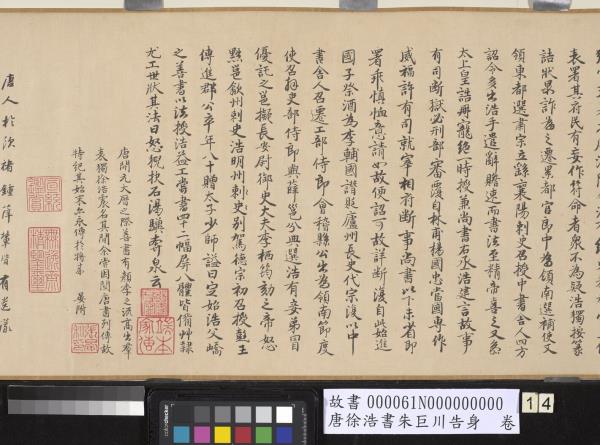 表署其府民有妄作符命者衆不為疑浩獨按篆
詰狀果詐為之遷累都官郎中為領南選補使又
領東都選肅宗立繇襄陽刺史召授中書舍人四方
詔令多出浩手遣辭贍速而書法至精帝喜之又參
太上皇誥冊寵絶一時授兼尚書右丞浩建言故事
有司斷獄必刑部審覆自林甫楊國忠當國專作
威福許有司就宰相府斷事尚書以下未省即
署乖慎恤意請如故便詔可故詳斷復自此始進
國子祭酒為李輔國譖貶廬州長史代宗復以中
書舍人召遷工部侍郎會稽縣公出為領南節度
使召拜吏部侍郎與薛邕分典選浩有妾弟冒
優託之邕擬長安尉御史大夫李栖筠劾之帝怒
黜邕歙州刺史浩明州刺史別駕德宗初召授彭王
傅進郡公卒年八十贈太子少師謚曰定始浩父嶠
之善書以法授浩益工嘗書四十二幅屏八體皆備艸隸
尤工世狀其法曰怒猊抉石渴驥奔泉云
唐開元大曆之際善書有顔李之流高出羣
表獨徐浩最名其間余嘗因閱唐書列傳故
特紀其始末
唐人於 褚鍾薛輩皆有
故書 000061N000000000
唐徐浩書朱巨川告身 卷
14